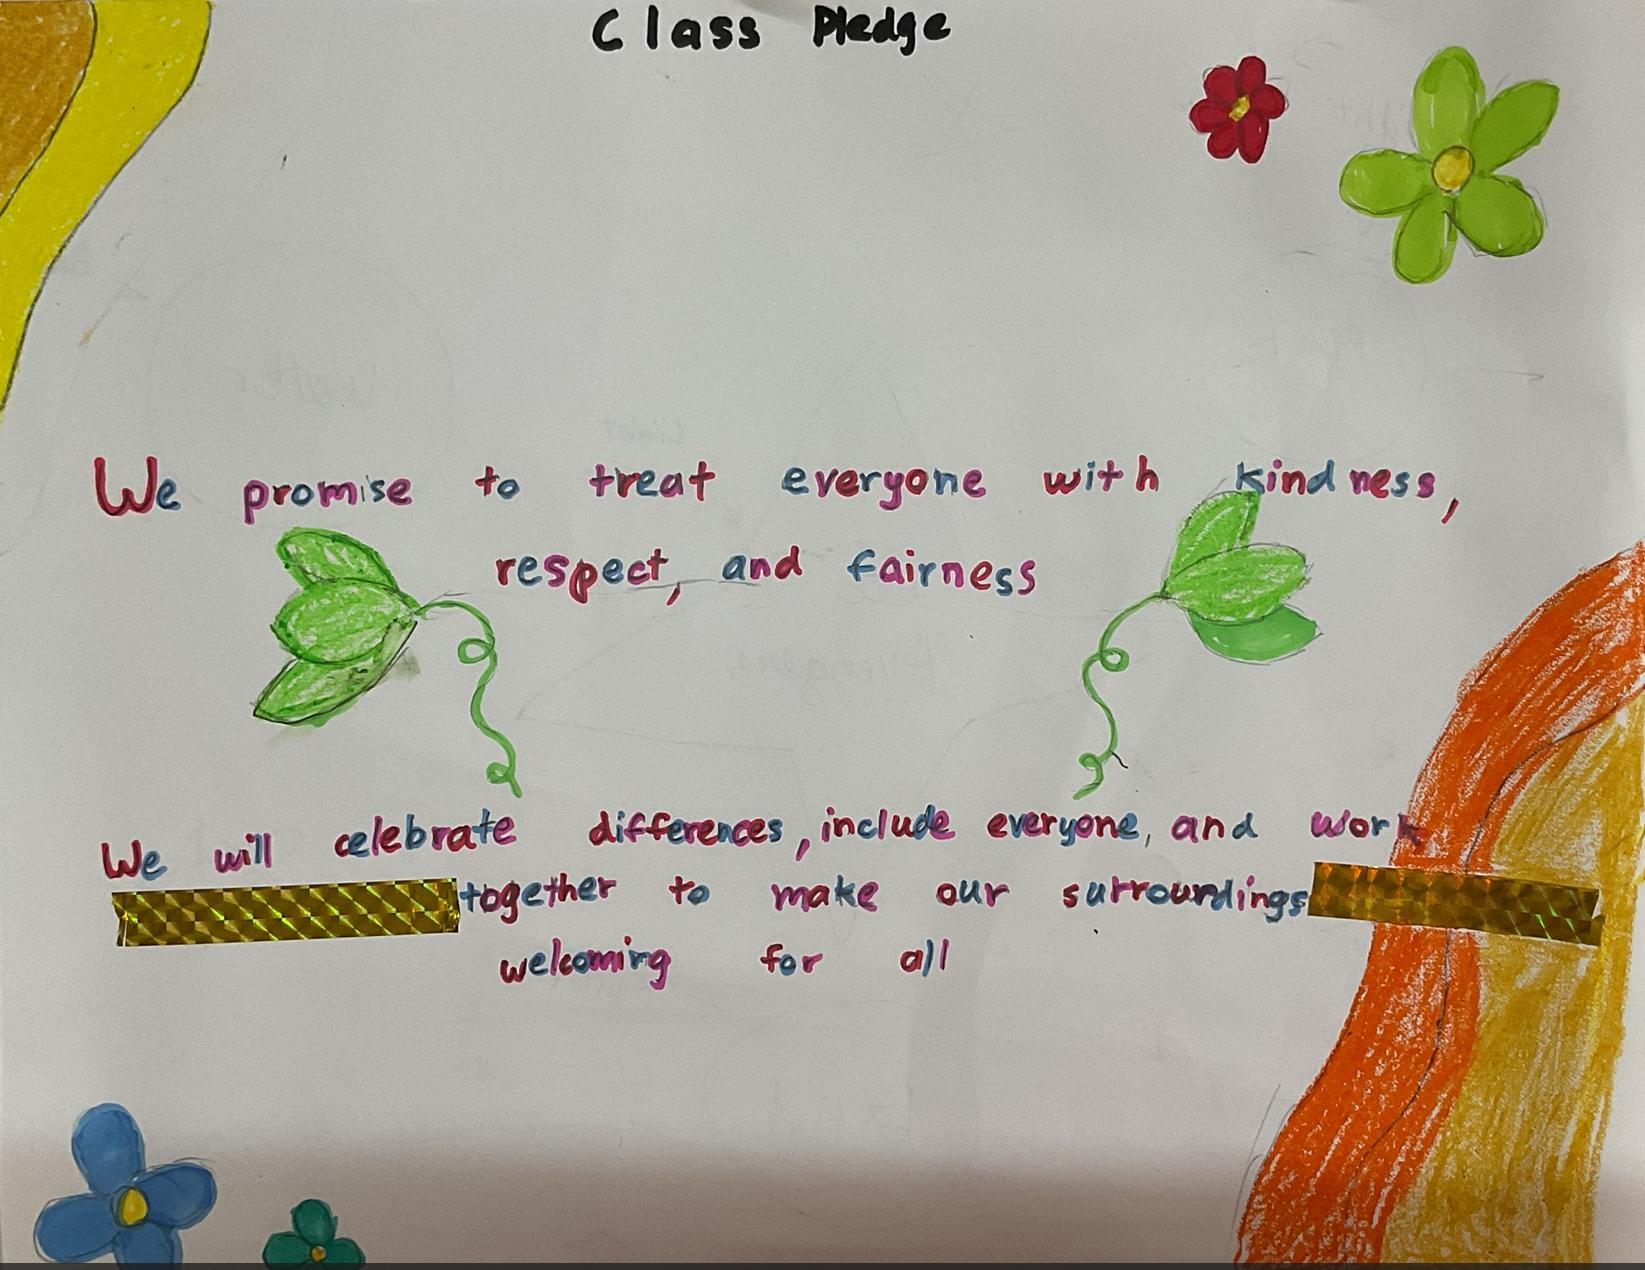 Class Pledge
We promise to treat everyone with kindness,
respect, and fairness
We will celebrate differences, include everyone, and work
together to make our surroundings
welcoming for all